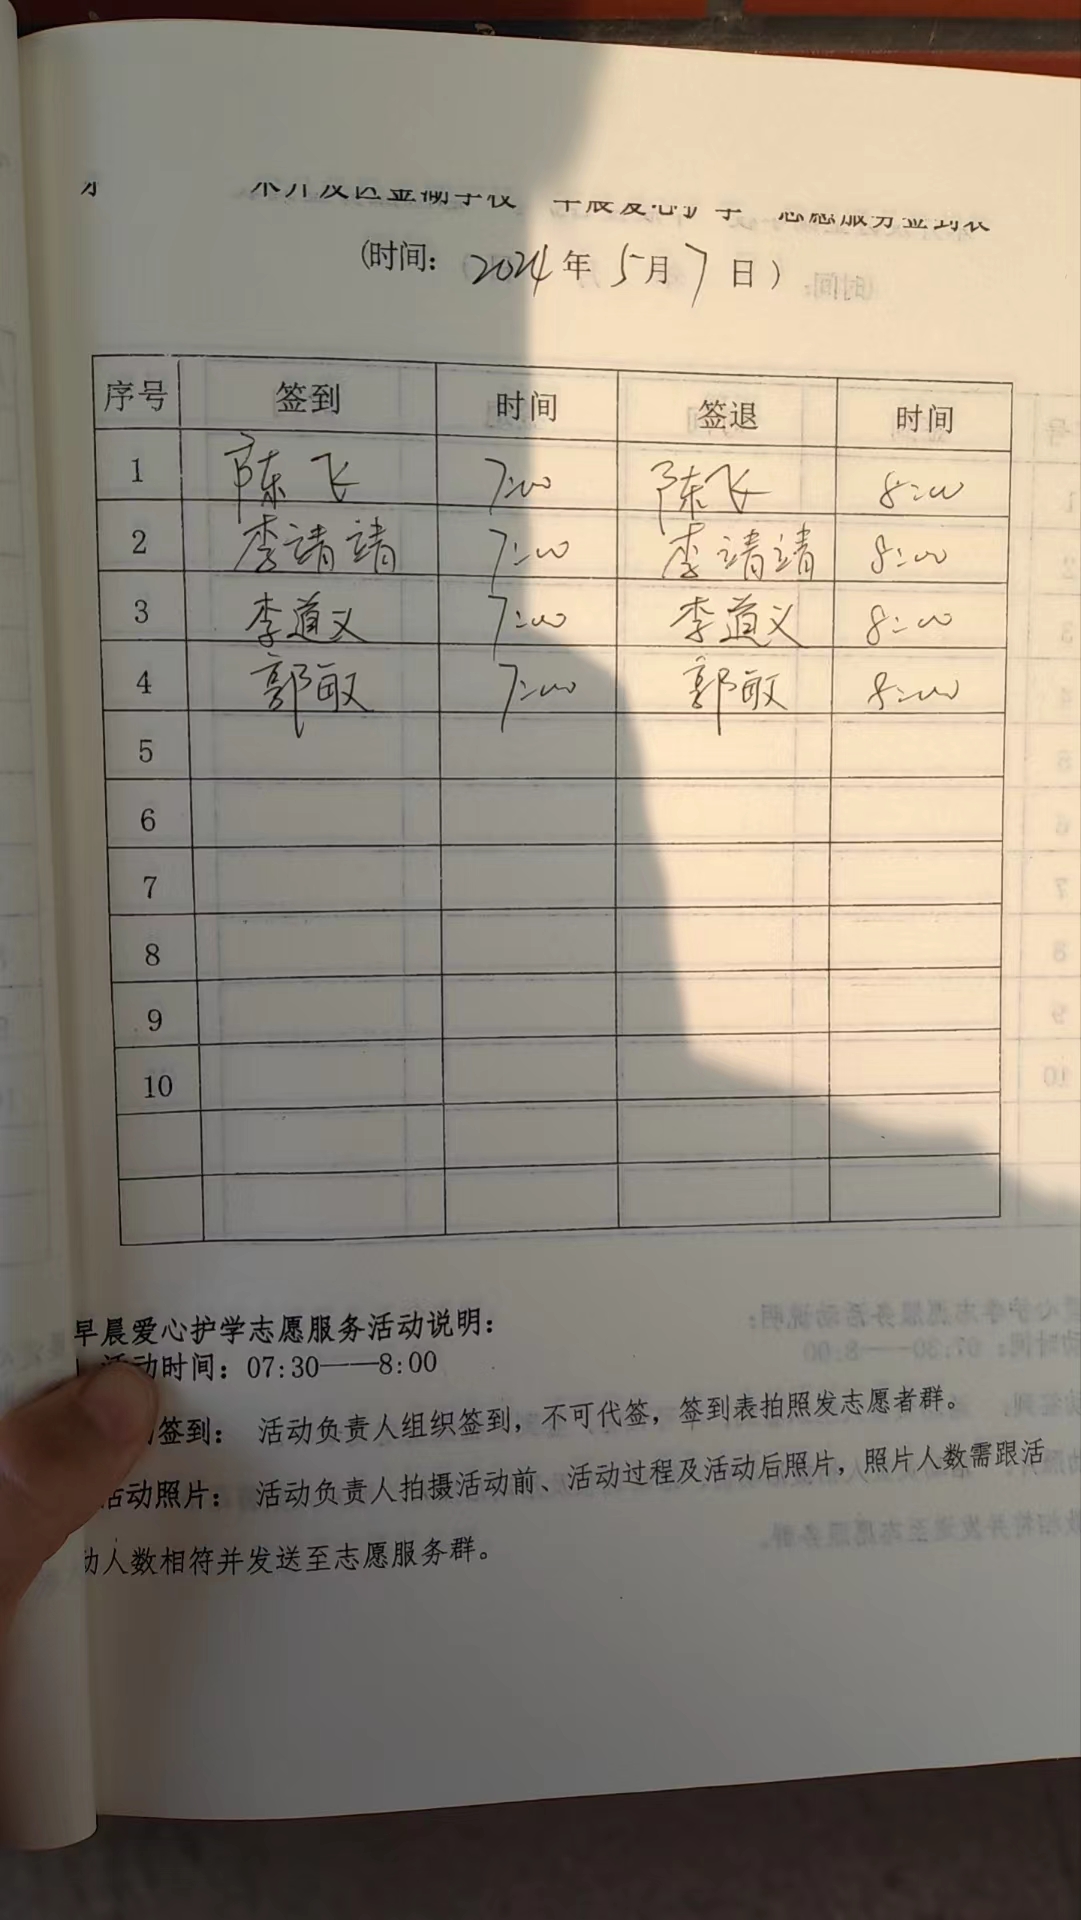 开发区金湖学校 早晨爱心护学 志愿服务签到表
(时间: 2024 年 5 月 7 日 )
序号 签到 时间 签退 时间
1 陈飞 7:00 陈飞 8:00
2 李靖靖 7:00 李靖靖 8:00
3 李道义 7:00 李道义 8:00
4 郭敏 7:00 郭敏 8:00
5
6
7
8
9
10
早晨爱心护学志愿服务活动说明:
活动时间: 07:30——8:00
签到: 活动负责人组织签到, 不可代签, 签到表拍照发志愿者群。
活动照片: 活动负责人拍摄活动前、活动过程及活动后照片, 照片人数需跟活
动人数相符并发送至志愿服务群。